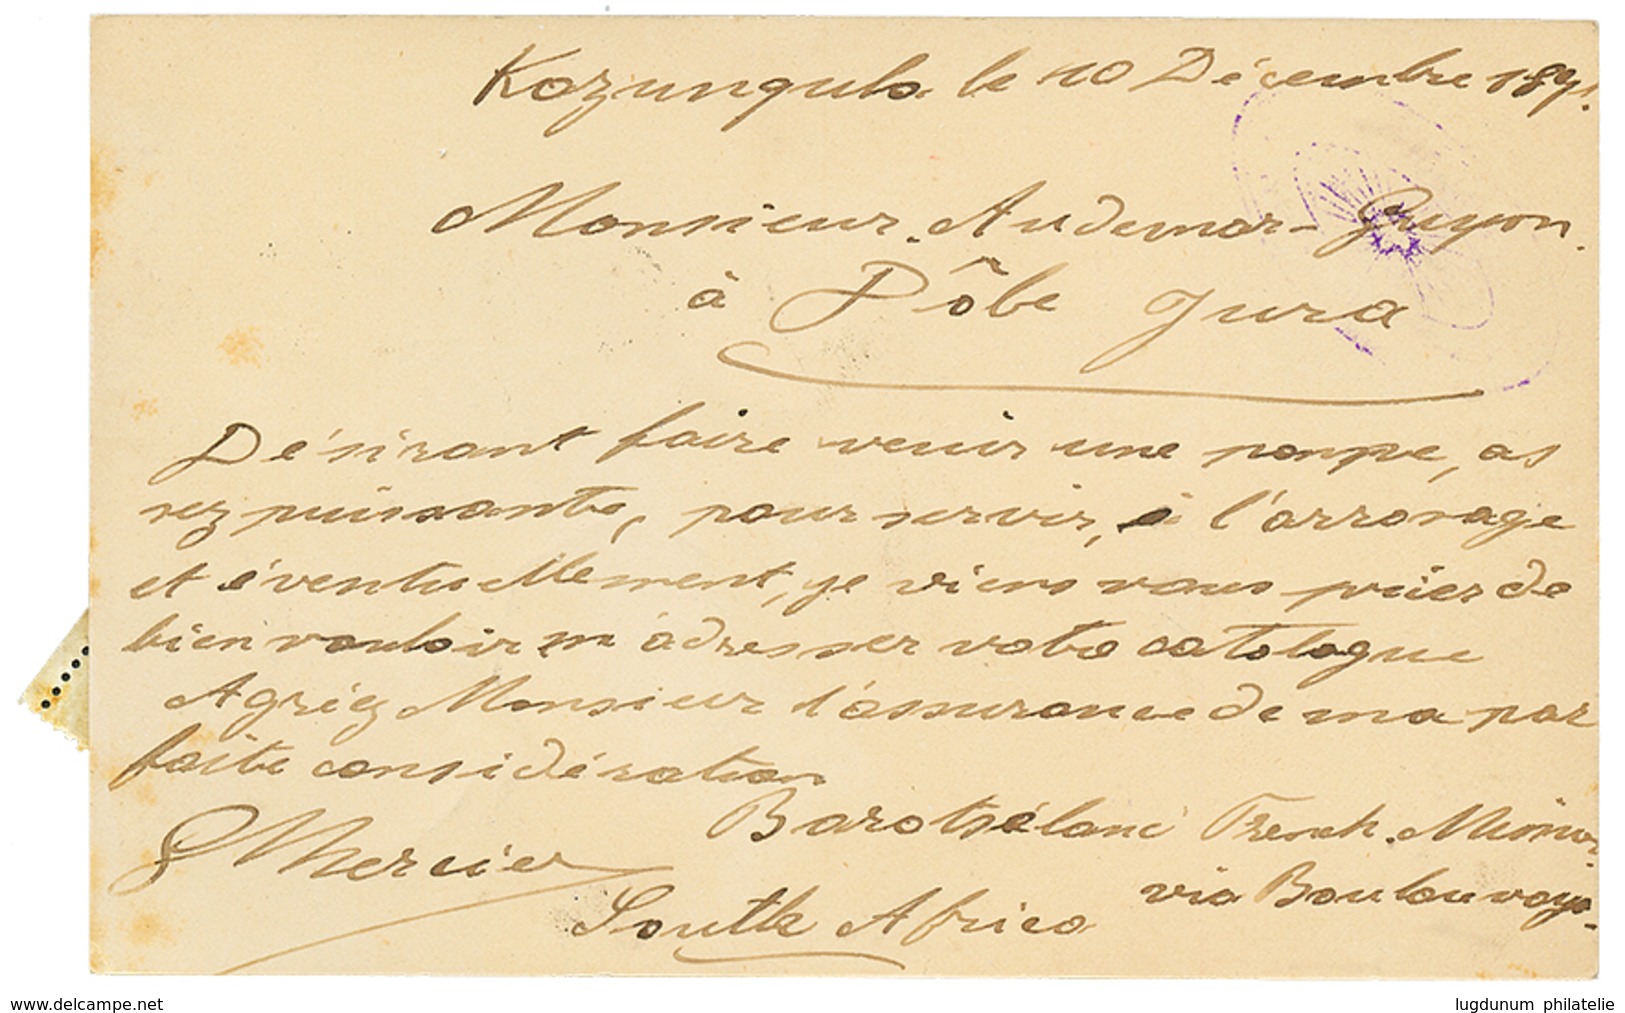 Kazungula le 10 Décembre 189
Monsieur Audemar-Guyon
à Dôle Jura
Désirant faire venir une pompe, as
sez puissante, pour servir, à l'arrosage
et éventuellement, je viens vous prier de
bien vouloir m'adresser votre catalogue
Agréez Monsieur l'assurance de ma par
faite considération
Mercier
Barotséland French Mission
via Boulouvayo
South Africa
www.delcampe.net
lugdunum philatelie